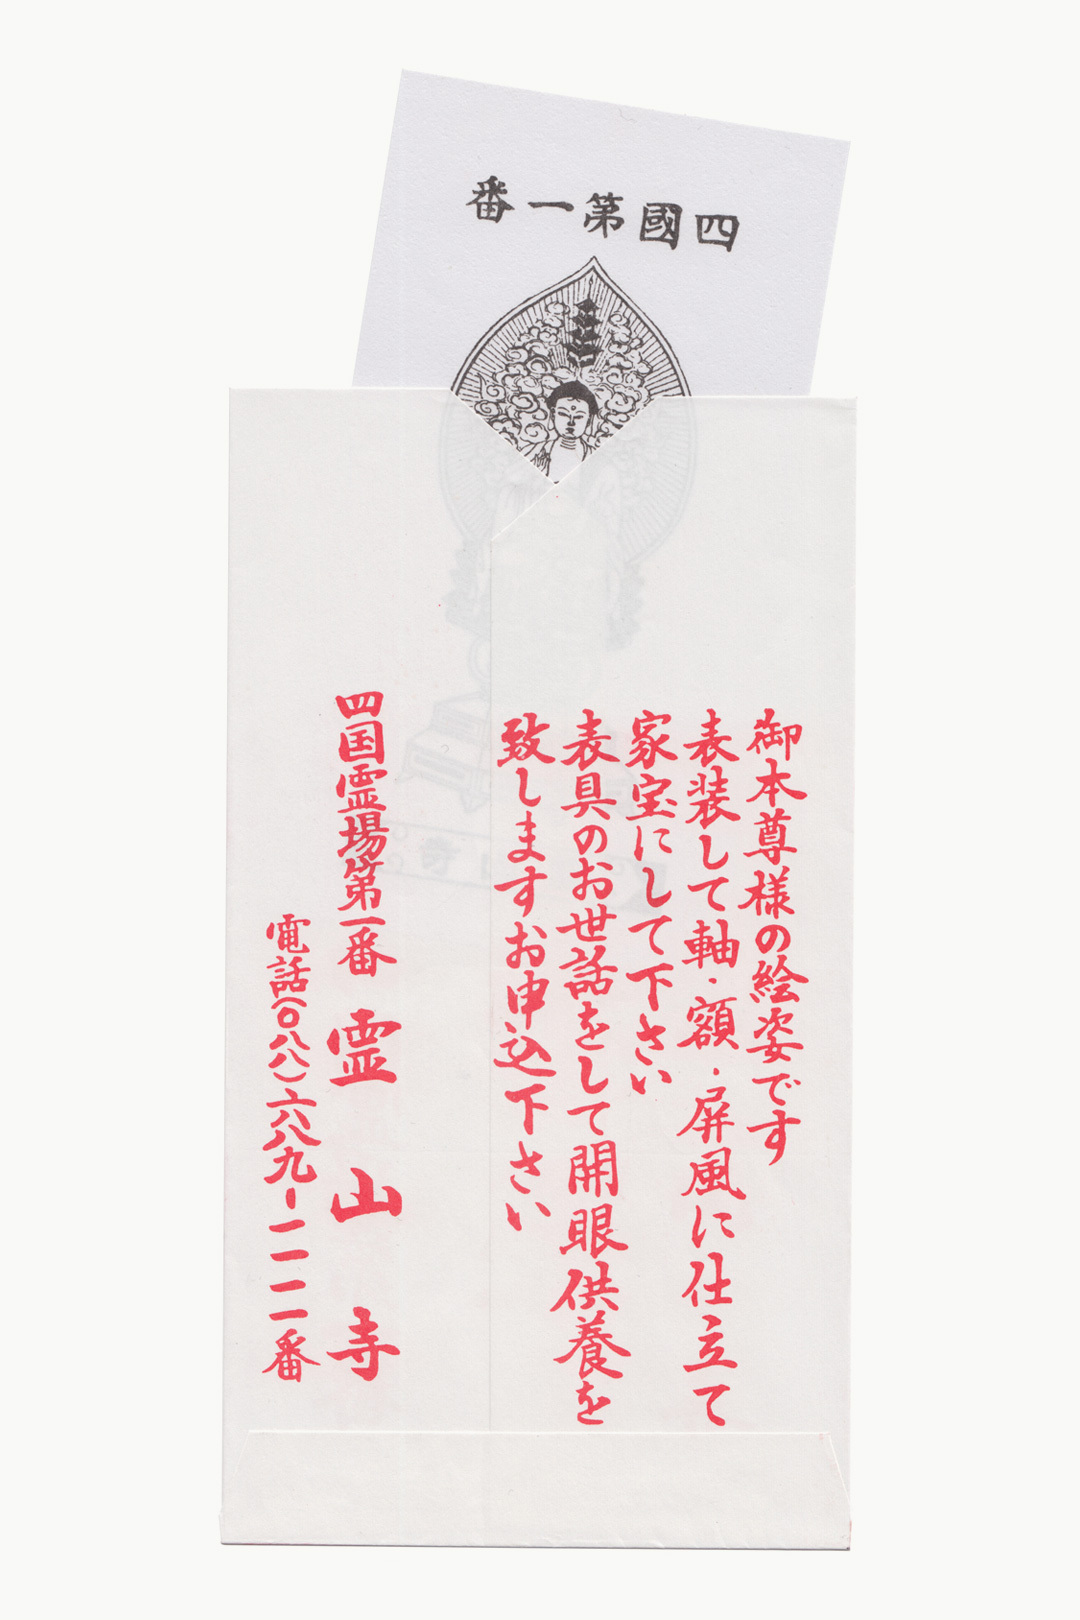 四國第一番
御本尊様の絵姿です
表装して軸・額・屏風に仕立て
家宝にして下さい
表具のお世話をして開眼供養を
致しますお申込下さい
四国霊場第一番 霊山寺
電話(〇八八)六八九-一一一一番